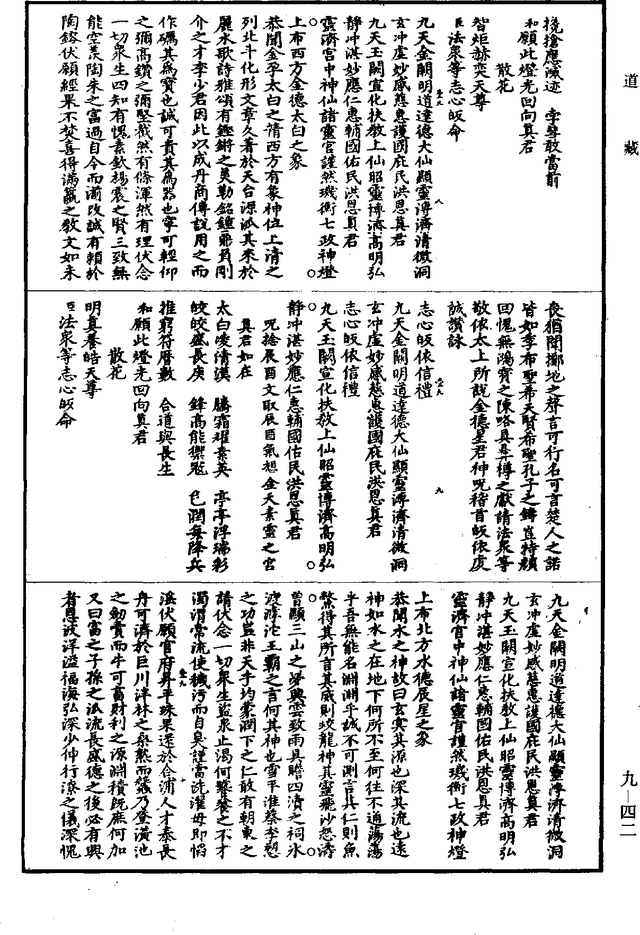 道藏
攙搶應滅迹　孛彗敢當前
和願此燈光回向真君
散花
智炬赫奕天尊
臣法眾等志心皈命
九天金闕明道達德大仙顯靈溥濟清微洞
玄冲虛妙感慈惠護國庇民洪恩真君
九天玉闕宣化扶教上仙昭靈博濟高明弘
靜冲湛妙應仁惠輔國佑民洪恩真君
靈濟宮中神仙諸靈官謹然璣衡七政神燈
上布西方金德太白之象
恭聞金孚太白之精西方有象神位上清之
列北斗化形文章久著於天台源派其來於
麗水歌詩雅頌有鏗鏘之美勒銘鐘鼎負剛
介之才李少君因此以成丹商傅說用之而
作礪其為寶也誠可貴其為器也寧可輕仰
之彌高鑽之彌堅截然有條渾然有理伏念
一切眾生四知有愧素欽楊震之賢三致無
能空羨陶朱之富過自今而濁改誠有賴於
陶鎔伏願經果不焚喜得滿籯之教文如未
喪猶聞擲地之聲言可行名可言楚人之諾
皆如李布聖希天賢希聖孔子之鑄豈特顏
回愧無鴻寶之陳略具犧樽之獻請法眾等
敬依太上所說金德星君神咒稽首皈依虔
誠讚詠
志心皈依信禮
九天金闕明道達德大仙顯靈溥濟清微洞
玄冲虛妙感慈惠護國庇民洪恩真君
志心皈依信禮
九天玉闕宣化扶教上仙昭靈博濟高明弘
靜冲湛妙應仁惠輔國佑民洪恩真君
咒捻辰酉文取辰酉氣想金天素靈之宮
真君如在
太白凌清漢　騰霜耀素英　亭亭浮瑞彩
皎皎盛長庚　鋒高能禦冦　色潤每降兵
推窮符曆數　合道與長生
和願此燈光回向真君
散花
明真養皓天尊
臣法眾等志心皈命
九天金闕明道達德大仙顯靈溥濟清微洞
玄冲虛妙感慈惠護國庇民洪恩真君
九天玉闕宣化扶教上仙昭靈博濟高明弘
靜冲湛妙應仁惠輔國佑民洪恩真君
靈濟宮中神仙諸靈官謹然璣衡七政神燈
上布北方水德辰星之象
恭聞水之神故曰玄冥其源也深其流也遠
神如水之在地下何所不至何往不通蕩蕩
乎吾無能名淵淵乎誠不可測言其仁則魚
鱉得其所言其威則蛟龍神其靈飛沙怒濤
曾顯三山之勞興雲致雨具瞻四瀆之祠氷
渡滹沱王霸之言何其神也雪平淮蔡李愬
之功豈非天乎均蒙潤下之仁敢有朝東之
請伏念一切眾生盜泉止渴何嫛嫛之不才
濁渭常流使機污而自臭謹當洗濯毋即慆
滛伏願官府昇平珠果還於合浦人才泰長
舟可濟於巨川津林之桑熟而蠶乃登潢池
之劒賣而牛可畜財利之源淵積既庶何加
又曰富之子孫之派流長盛德之後必有興
者恩波洋溢福海弘深少伸行潦之儀深愧
九—四二